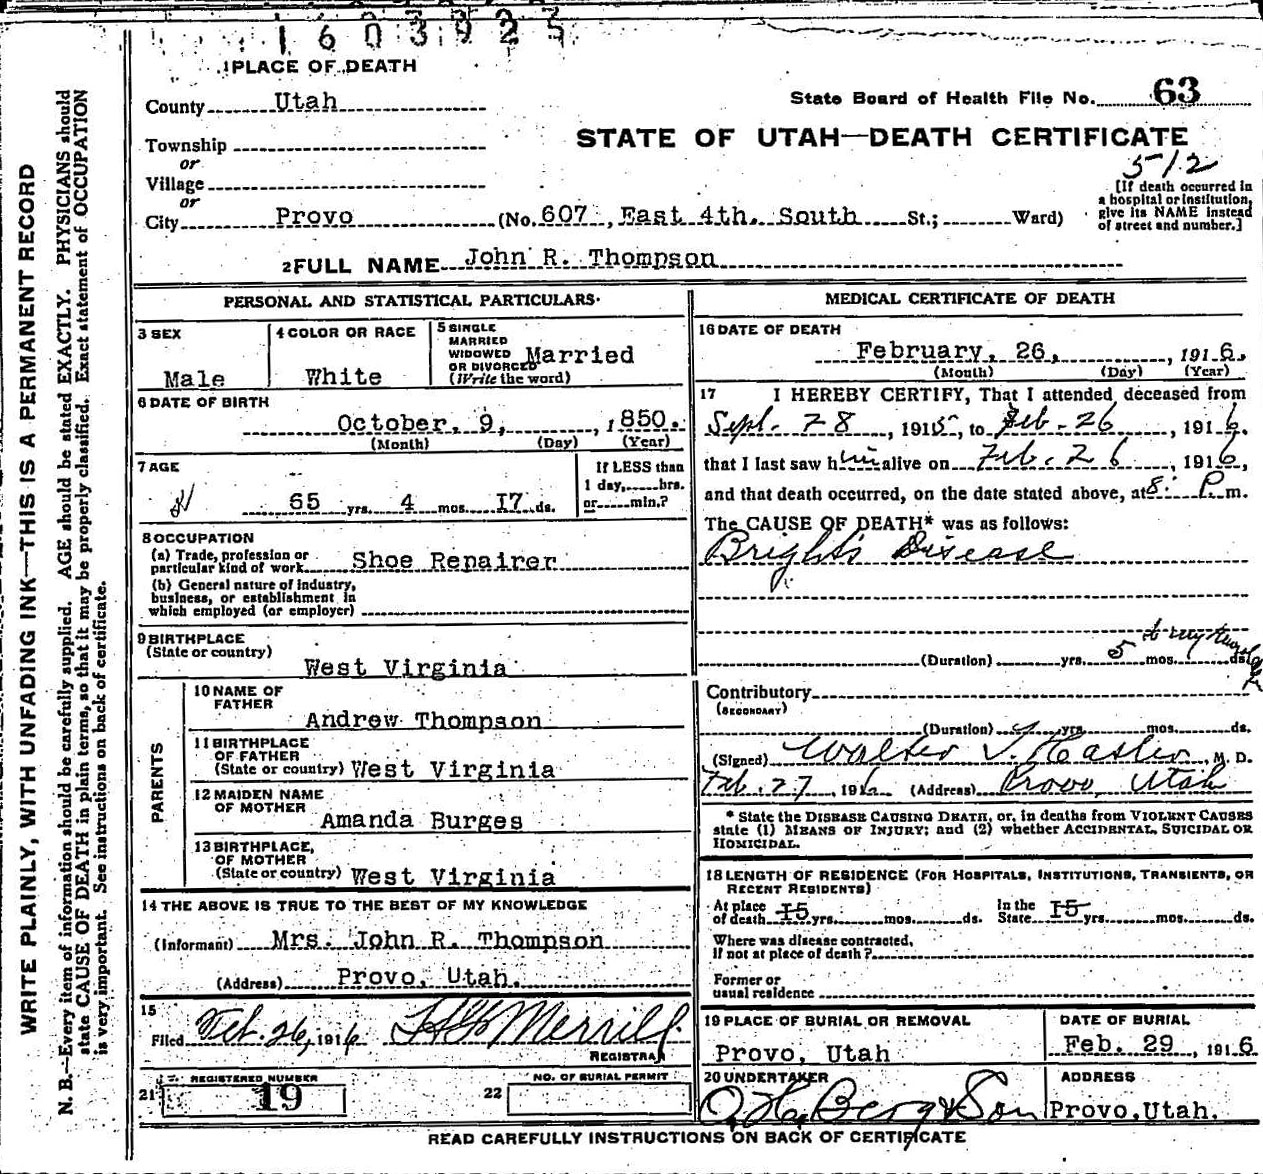 1603925
WRITE PLAINLY, WITH UNFADING INK—THIS IS A PERMANENT RECORD
N. B.—Every item of information should be carefully supplied. AGE should be stated EXACTLY. PHYSICIANS should
state CAUSE OF DEATH in plain terms, so that it may be properly classified. Exact statement of OCCUPATION
is very important. See instructions on back of certificate.
1 PLACE OF DEATH
County Utah
State Board of Health File No. 63
Township
STATE OF UTAH—DEATH CERTIFICATE
or
512
Village
or
City Provo (No. 607, East 4th. South St.; Ward)
[If death occurred in
a hospital or institution,
give its NAME instead
of street and number.]
2 FULL NAME John R. Thompson
PERSONAL AND STATISTICAL PARTICULARS
3 SEX
Male
4 COLOR OR RACE
White
5 SINGLE
MARRIED
WIDOWED
OR DIVORCED
(Write the word)
Married
6 DATE OF BIRTH
October, 9, , 1850.
(Month) (Day) (Year)
7 AGE
65 yrs. 4 mos. 17 ds.
If LESS than
1 day, hrs.
or min.?
8 OCCUPATION
(a) Trade, profession or
particular kind of work Shoe Repairer
(b) General nature of industry,
business, or establishment in
which employed (or employer)
9 BIRTHPLACE
(State or country)
West Virginia
PARENTS
10 NAME OF
FATHER
Andrew Thompson
11 BIRTHPLACE
OF FATHER
(State or country) West Virginia
12 MAIDEN NAME
OF MOTHER
Amanda Burges
13 BIRTHPLACE,
OF MOTHER
(State or country) West Virginia
14 THE ABOVE IS TRUE TO THE BEST OF MY KNOWLEDGE
(Informant) Mrs. John R. Thompson
(Address) Provo, Utah.
15
Filed Feb. 26, 1916 Merrill
REGISTRAR
21 REGISTERED NUMBER
19
22 NO. OF BURIAL PERMIT
MEDICAL CERTIFICATE OF DEATH
16 DATE OF DEATH
February, 26, , 1916.
(Month) (Day) (Year)
17 I HEREBY CERTIFY, That I attended deceased from
Sept. 28, 1915, to Feb. 26, 1916.
that I last saw him alive on Feb. 26, 1916,
and that death occurred, on the date stated above, at 8: P. m.
The CAUSE OF DEATH* was as follows:
Bright's Disease
(Duration) yrs. 5 mos. ds.
Contributory
(SECONDARY)
(Duration) yrs. mos. ds.
(Signed) Walter T. Hasler, M. D.
Feb. 27, 1916 (Address) Provo, Utah
* State the DISEASE CAUSING DEATH, or, in deaths from VIOLENT CAUSES
state (1) MEANS OF INJURY; and (2) whether ACCIDENTAL, SUICIDAL OR
HOMICIDAL.
18 LENGTH OF RESIDENCE (FOR HOSPITALS, INSTITUTIONS, TRANSIENTS, OR
RECENT RESIDENTS)
At place of death 15 yrs. mos. ds. In the State 15 yrs. mos. ds.
Where was disease contracted,
if not at place of death?
Former or
usual residence
19 PLACE OF BURIAL OR REMOVAL
Provo, Utah
DATE OF BURIAL
Feb. 29, 1916
20 UNDERTAKER
O. H. Berg & Son
ADDRESS
Provo, Utah.
READ CAREFULLY INSTRUCTIONS ON BACK OF CERTIFICATE